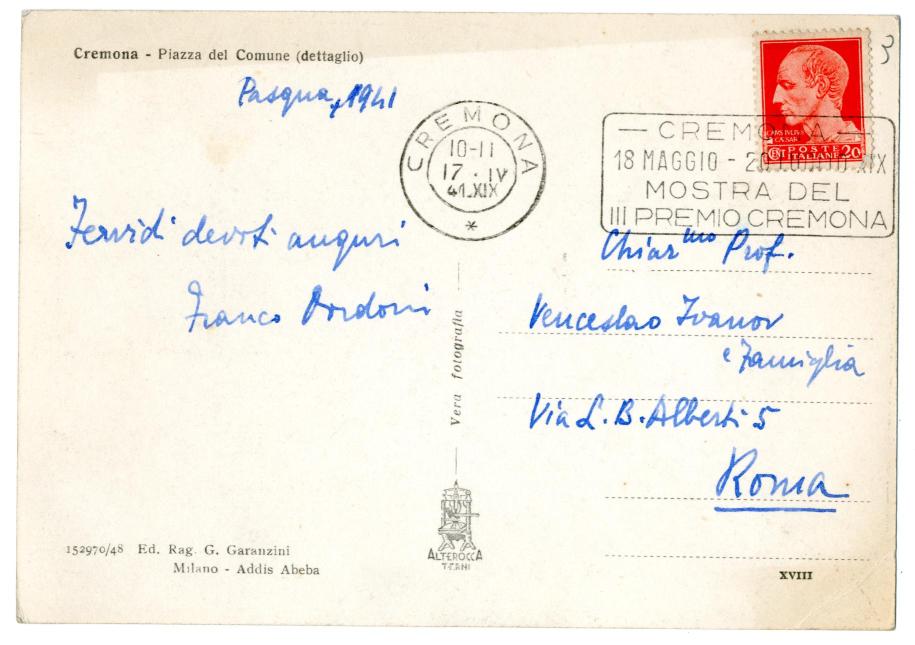 Cremona - Piazza del Comune (dettaglio)
3
Pasqua, 1941
CREMONA
10-11
17 . IV
41.XIX
*
— CREMONA —
18 MAGGIO - 20 XIX
MOSTRA DEL
III PREMIO CREMONA
CAIVS IVLIVS
CAESAR
CENT POSTE ITALIANE 20
Fervidi devoti auguri
Franco Dordoni
Chiar mo Prof.
Venceslao Ivanov
e Famiglia
Via L. B. Alberti 5
Roma
Vera fotografia
ALTEROCCA
TERNI
152970/48 Ed. Rag. G. Garanzini
Milano - Addis Abeba
XVIII